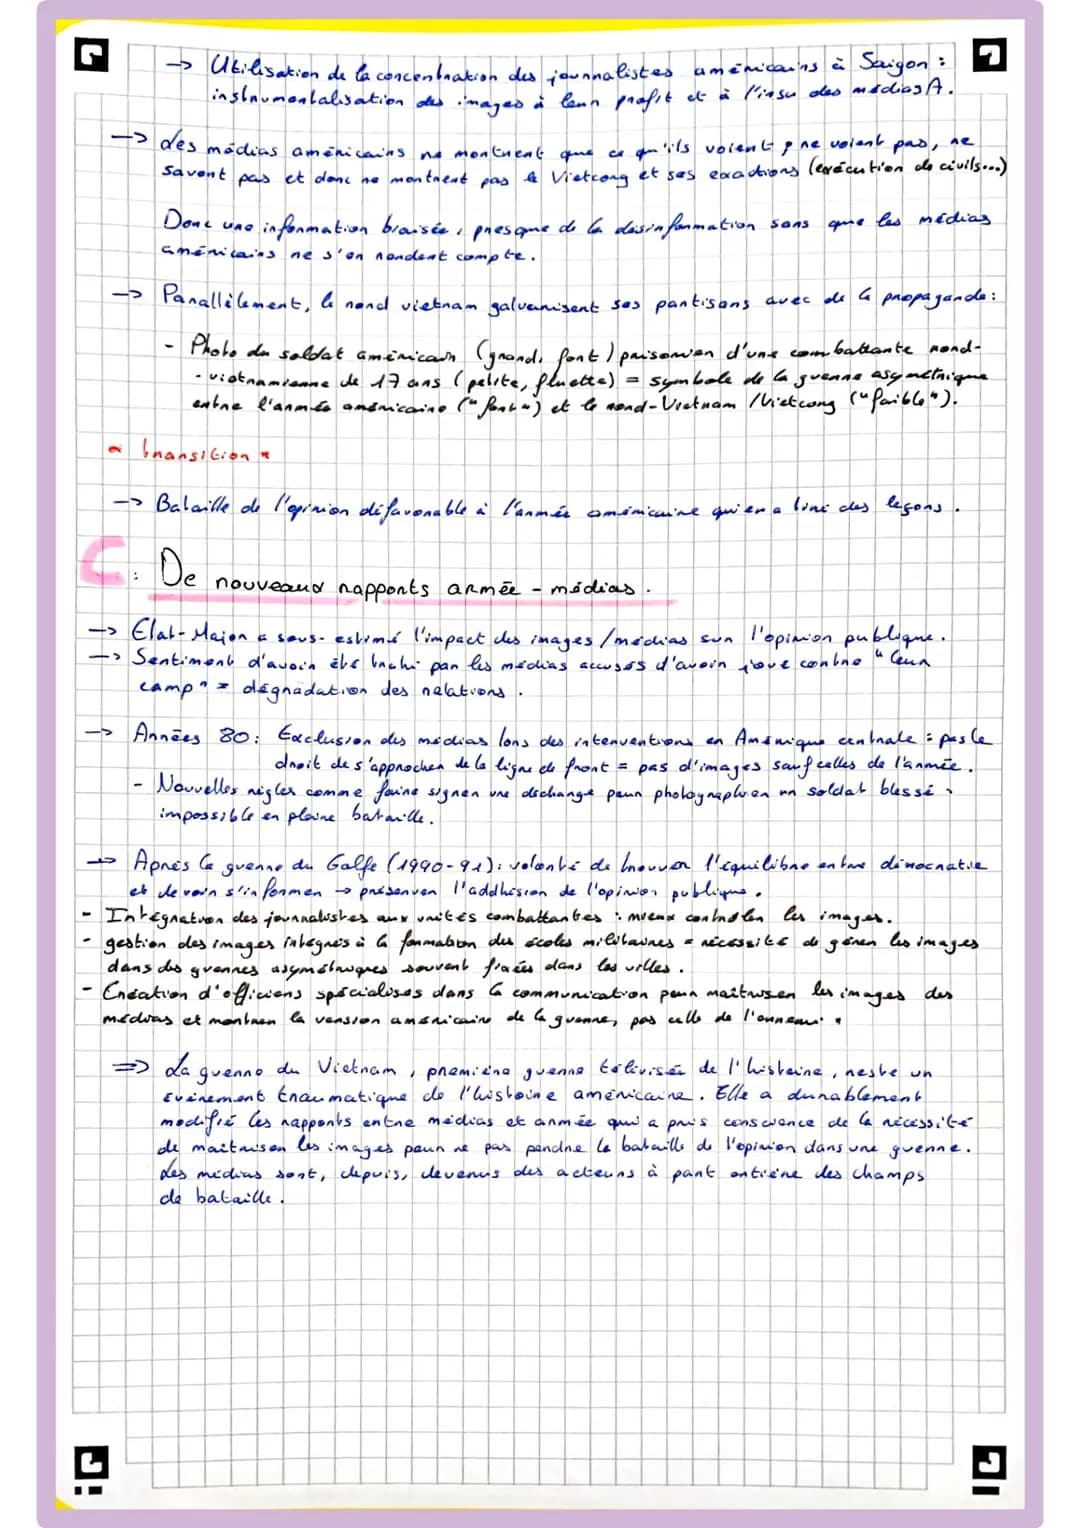 → Utilisation de la concentration des journalistes américains à Saigon :
instrumentalisation des images à leur profit et à l'insu des médias A.
→ Les médias américains ne montrent que ce qu'ils voient, ne voient pas, ne
savent pas et donc ne montrent pas le Vietcong et ses exactions (exécution de civils...)
Donc une information biaisée, presque de la désinformation sans que les médias
américains ne s'en rendent compte.
→ Parallèlement, le nord vietnam galvanisent ses partisans avec de la propagande :
- Photo du soldat américain (grand, fort) prisonnier d'une combattante nord-
-vietnamienne de 17 ans (petite, fluette) = symbole de la guerre asymétrique
entre l'armée américaine ("fort") et le nord-Vietnam /Vietcong ("faible").
* transition *
→ Bataille de l'opinion défavorable à l'armée américaine qui en a tiré des leçons.
C : De nouveaux rapports armée - médias.
→ Etat-Major a sous-estimé l'impact des images/médias sur l'opinion publique.
→ Sentiment d'avoir été trahi par les médias accusés d'avoir joué contre "leur
camp" = dégradation des relations.
→ Années 80 : Exclusion des médias lors des interventions en Amérique centrale : pas le
droit de s'approcher de la ligne de front = pas d'images sauf celles de l'armée.
- Nouvelles règles comme faire signer une décharge pour photographier un soldat blessé
impossible en pleine bataille.
→ Après la guerre du Golfe (1990-91) : volonté de trouver l'équilibre entre démocratie
et devoir s'informer → préserver l'addhésion de l'opinion publique.
- Intégration des journalistes aux unités combattantes : mieux contrôler les images.
- gestion des images intégrés à la formation des écoles militaires = nécessité de gérer les images
dans des guerres asymétriques souvent dans les villes.
- Création d'officiers spécialisés dans la communication pour maîtriser les images des
médias et montrer la version américaine de la guerre, pas celle de l'ennemi.
⇒ La guerre du Vietnam, première guerre télévisée de l'histoire, reste un
évènement traumatique de l'histoire américaine. Elle a durablement
modifié les rapports entre médias et armée qui a pris conscience de la nécessité
de maîtriser les images pour ne pas perdre la bataille de l'opinion dans une guerre.
Les médias sont, depuis, devenus des acteurs à part entière des champs
de bataille.